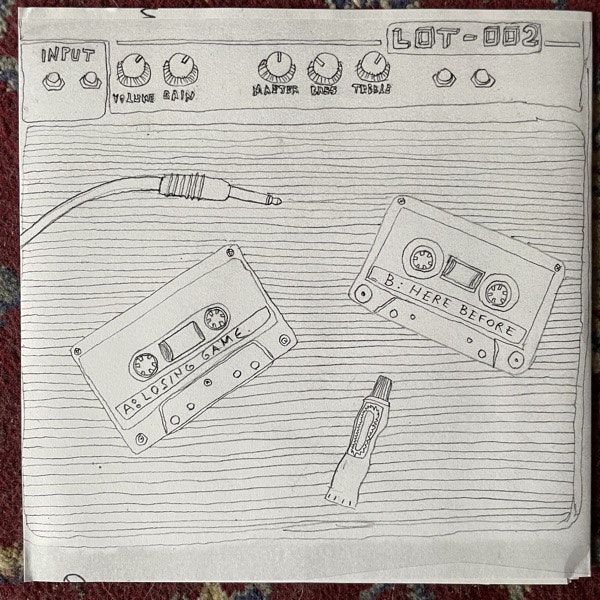 INPUT
LOT-002
VOLUME GAIN MASTER BASS TREBLE
B: HERE BEFORE
A: LOSING GAME.